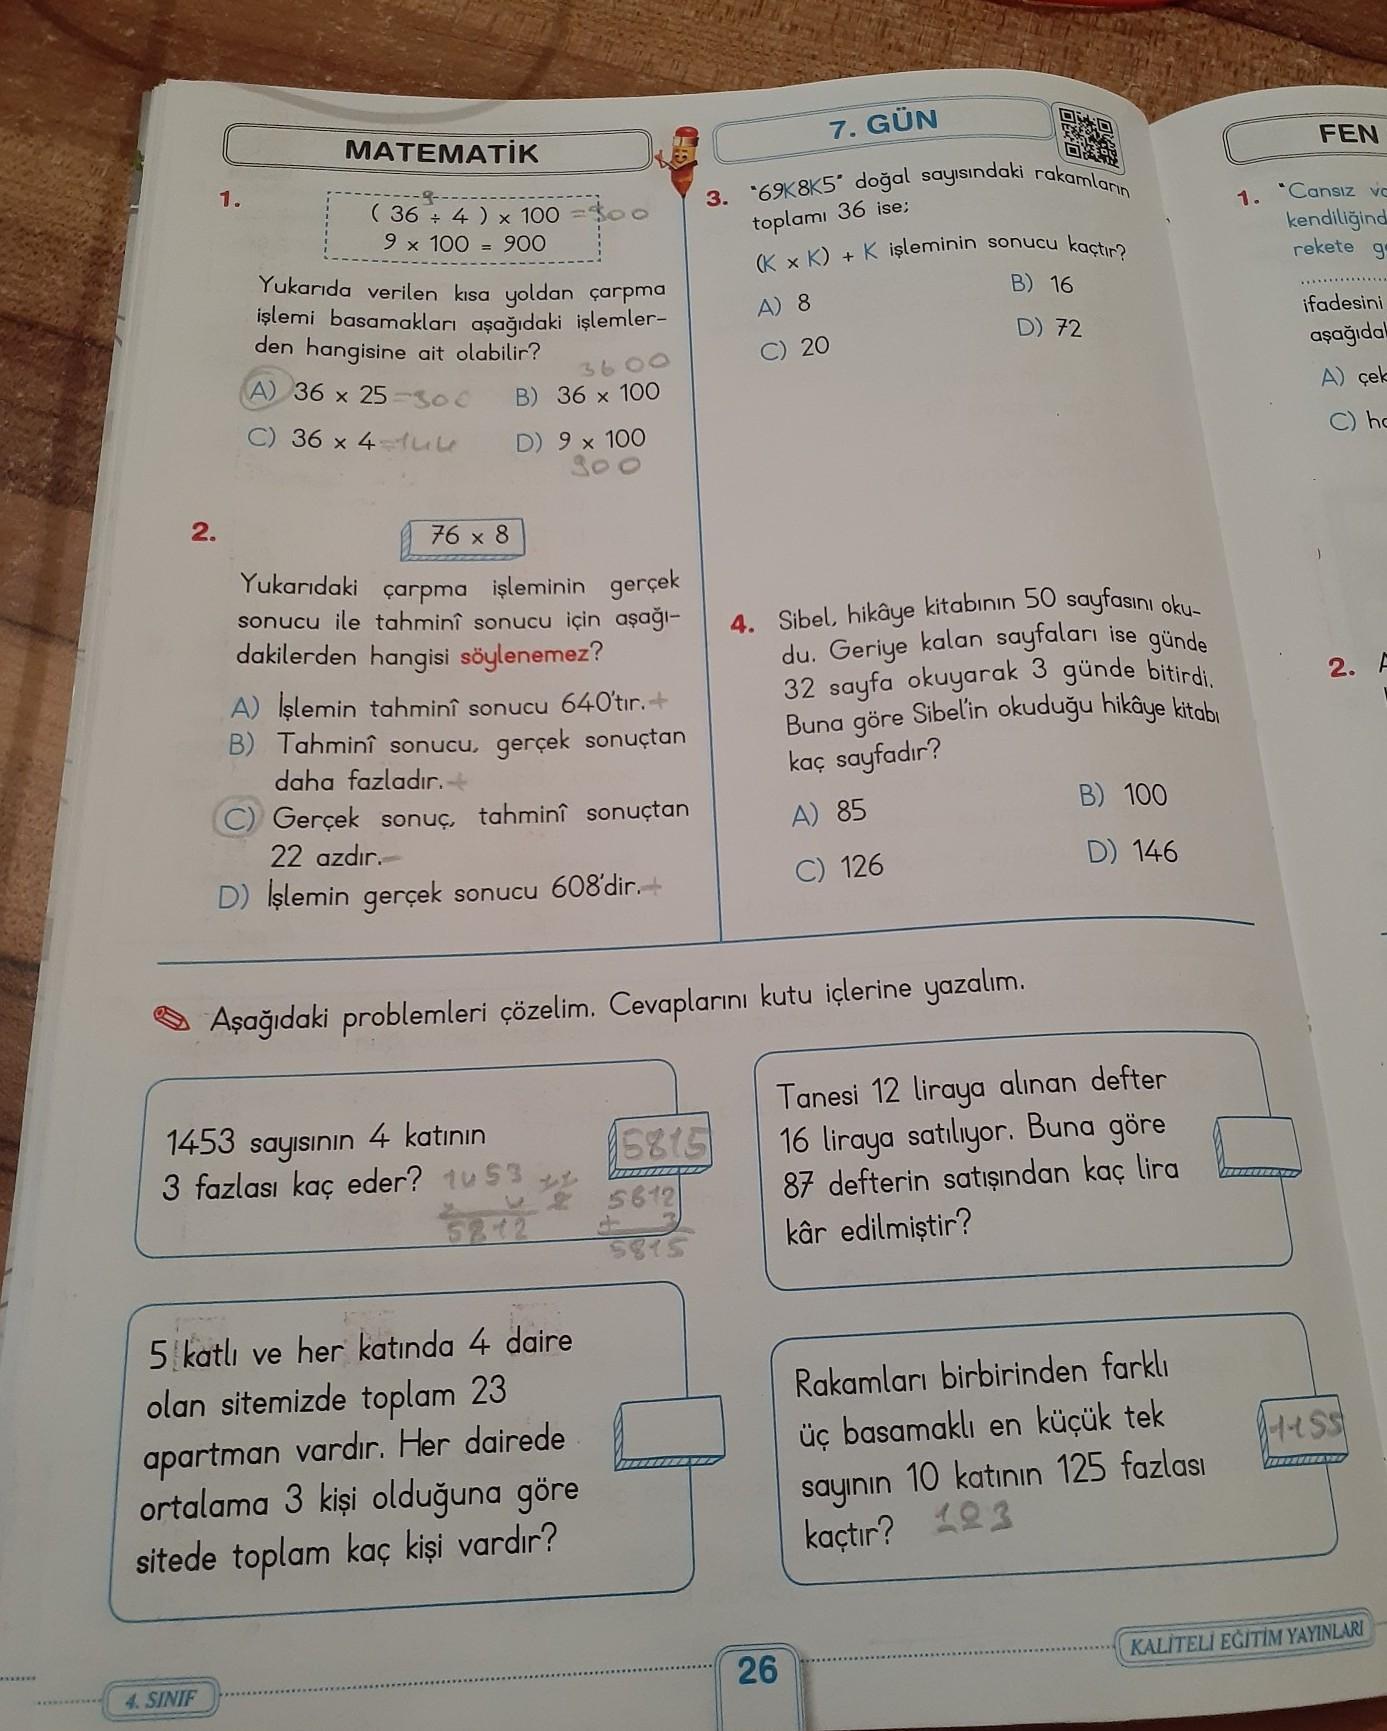 MATEMATİK
1.
9
( 36 ÷ 4 ) x 100 = 900
9 x 100 = 900
Yukarıda verilen kısa yoldan çarpma
işlemi basamakları aşağıdaki işlemler-
den hangisine ait olabilir?
3600
A) 36 x 25 = 900 B) 36 x 100
C) 36 x 4 = 144 D) 9 x 100
900
2.
76 x 8
Yukarıdaki çarpma işleminin gerçek
sonucu ile tahminî sonucu için aşağı-
dakilerden hangisi söylenemez?
A) İşlemin tahminî sonucu 640'tır. +
B) Tahminî sonucu, gerçek sonuçtan
daha fazladır. +
C) Gerçek sonuç, tahminî sonuçtan
22 azdır. -
D) İşlemin gerçek sonucu 608'dir. +
7. GÜN
3. "69K8K5" doğal sayısındaki rakamların
toplamı 36 ise;
(K x K) + K işleminin sonucu kaçtır?
A) 8 B) 16
C) 20 D) 72
4. Sibel, hikâye kitabının 50 sayfasını oku-
du. Geriye kalan sayfaları ise günde
32 sayfa okuyarak 3 günde bitirdi.
Buna göre Sibel'in okuduğu hikâye kitabı
kaç sayfadır?
A) 85 B) 100
C) 126 D) 146
Aşağıdaki problemleri çözelim. Cevaplarını kutu içlerine yazalım.
1453 sayısının 4 katının
3 fazlası kaç eder?
5815
1453
x 4
5812
5812
+ 3
5815
Tanesi 12 liraya alınan defter
16 liraya satılıyor. Buna göre
87 defterin satışından kaç lira
kâr edilmiştir?
5 katlı ve her katında 4 daire
olan sitemizde toplam 23
apartman vardır. Her dairede
ortalama 3 kişi olduğuna göre
sitede toplam kaç kişi vardır?
Rakamları birbirinden farklı
üç basamaklı en küçük tek
sayının 10 katının 125 fazlası
kaçtır? 103
1155
4. SINIF
26
KALİTELİ EĞİTİM YAYINLARI
FEN
1. "Cansız
kendiliğind
rekete
ifadesini
A) çek
C)
2.